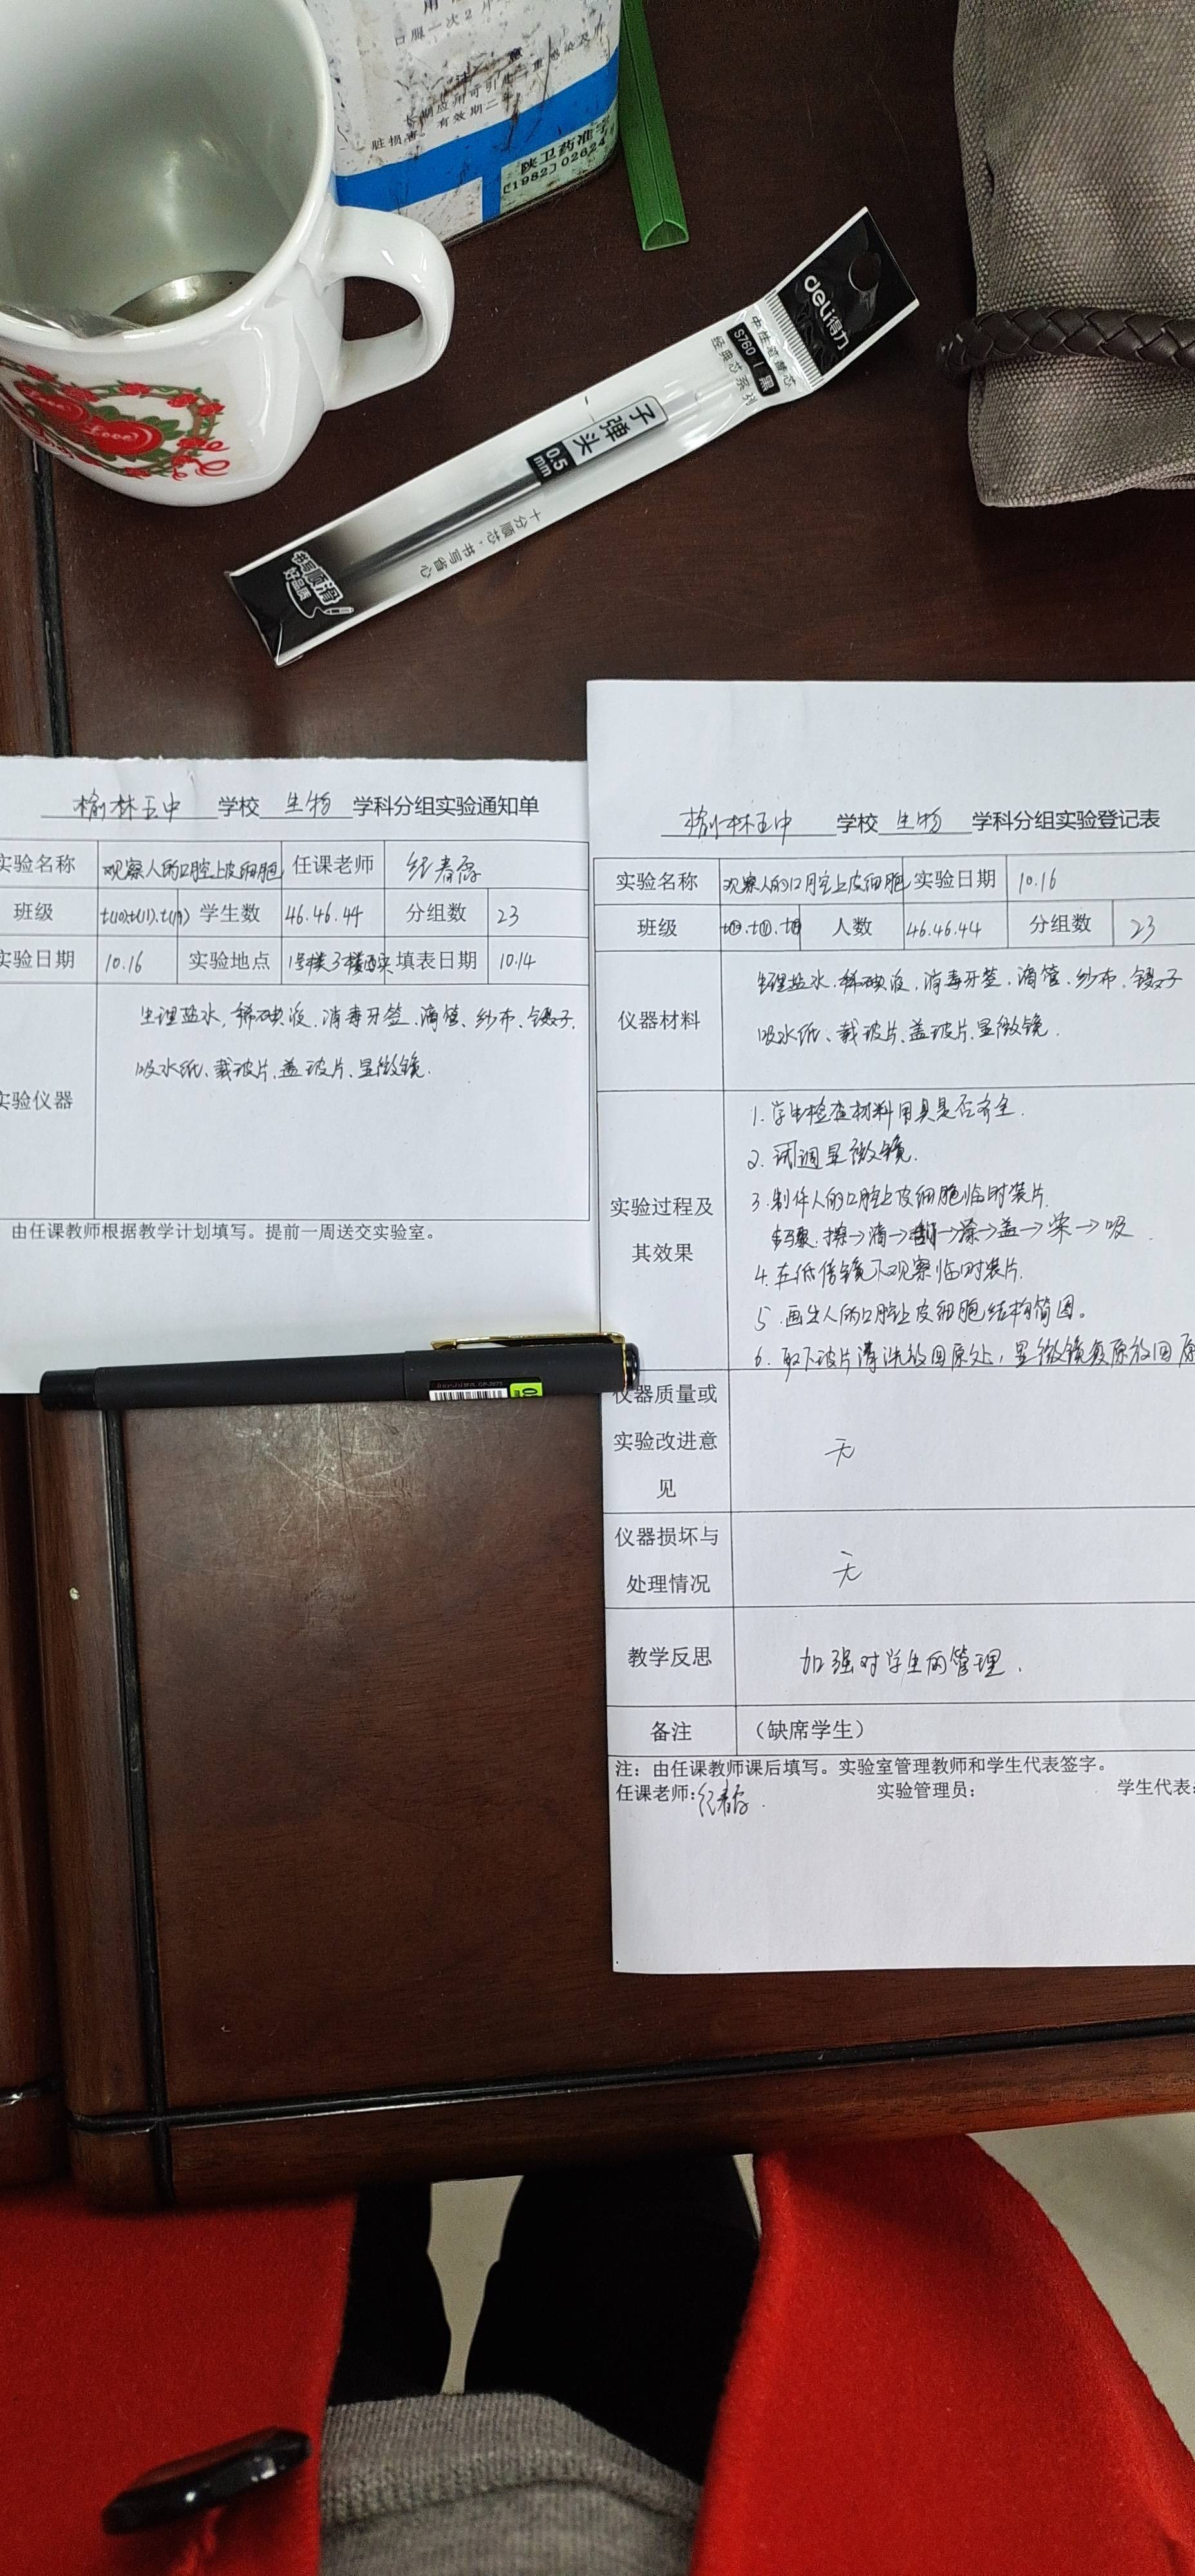 口服一次2片
注 意
长期应用可引
重感染及
脏损害。有效期二年
陕卫药准字
(1982) 02624
deli得力
中性笔替芯
S760 黑
经典芯系列
子弹头
0.5
mm
十分顺芯·书写省心
书写顺滑
好品质
榆林五中 学校 生物 学科分组实验通知单
实验名称 观察人的口腔上皮细胞 任课老师
班级 学生数 46.46.44 分组数 23
实验日期 10.16 实验地点 1号楼3楼西 填表日期 10.14
生理盐水、稀碘液、消毒牙签、滴管、纱布、镊子.
吸水纸、载玻片、盖玻片、显微镜.
实验仪器
由任课教师根据教学计划填写。提前一周送交实验室。
榆林五中 学校 生物 学科分组实验登记表
实验名称 观察人的口腔上皮细胞 实验日期 10.16
班级 人数 46.46.44 分组数 23
生理盐水、稀碘液、消毒牙签、滴管、纱布、镊子
仪器材料
吸水纸、载玻片、盖玻片、显微镜.
1. 学生检查材料用具是否齐全.
2. 调试显微镜.
3. 制作人的口腔上皮细胞临时装片.
实验过程及
步骤: 擦→滴→刮→涂→盖→染→吸.
其效果
4. 在低倍镜下观察临时装片.
5. 画出人的口腔上皮细胞结构简图。
6. 取下玻片清洗放回原处，显微镜复原放回原
仪器质量或
实验改进意
见
无
仪器损坏与
处理情况
无
教学反思 加强对学生的管理.
备注 （缺席学生）
注：由任课教师课后填写。实验室管理教师和学生代表签字。
任课老师: 实验管理员: 学生代表: